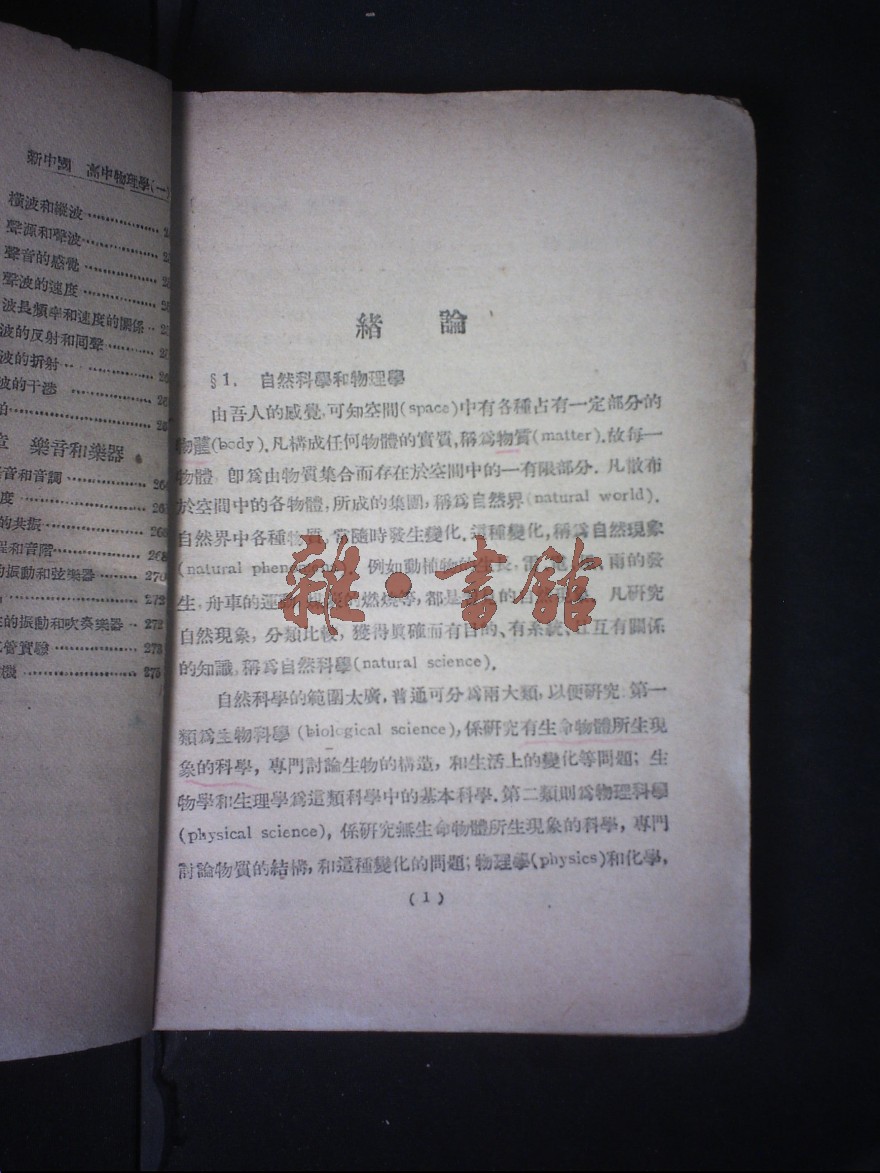 新中國 高中物理學(一)
橫波和縱波
聲源和聲波
聲音的感覺
聲波的速度
波長頻率和速度的關係
波的反射和回聲
波的折射
波的干涉
樂音和樂器
音和音調 264
度
的共振
程和音階 268
的振動和弦樂器 270
272
的振動和吹奏樂器 272
管實驗 273
機 275
緒 論
§1. 自然科學和物理學
由吾人的感覺,可知空間(space)中有各種占有一定部分的
物體(body).凡構成任何物體的實質,稱爲物質(matter).故每一
物體,卽爲由物質集合而存在於空間中的一有限部分.凡散布
於空間中的各物體,所成的集團,稱爲自然界(natural world).
自然界中各種物質,常隨時發生變化.這種變化,稱爲自然現象
(natural phenomena).例如動植物的生長,雷 雨的發
生,舟車的運 的燃燒等,都是 的自然現象.凡研究
自然現象,分類比較,獲得眞確而有目的、有系統、互有關係
的知識,稱爲自然科學(natural science).
自然科學的範圍太廣,普通可分爲兩大類,以便研究.第一
類爲生物科學(biological science),係研究有生命物體所生現
象的科學,專門討論生物的構造,和生活上的變化等問題;生
物學和生理學爲這類科學中的基本科學.第二類則爲物理科學
(physical science),係研究無生命物體所生現象的科學,專門
討論物質的結構,和這種變化的問題;物理學(physics)和化學,
(1)
雜·書館